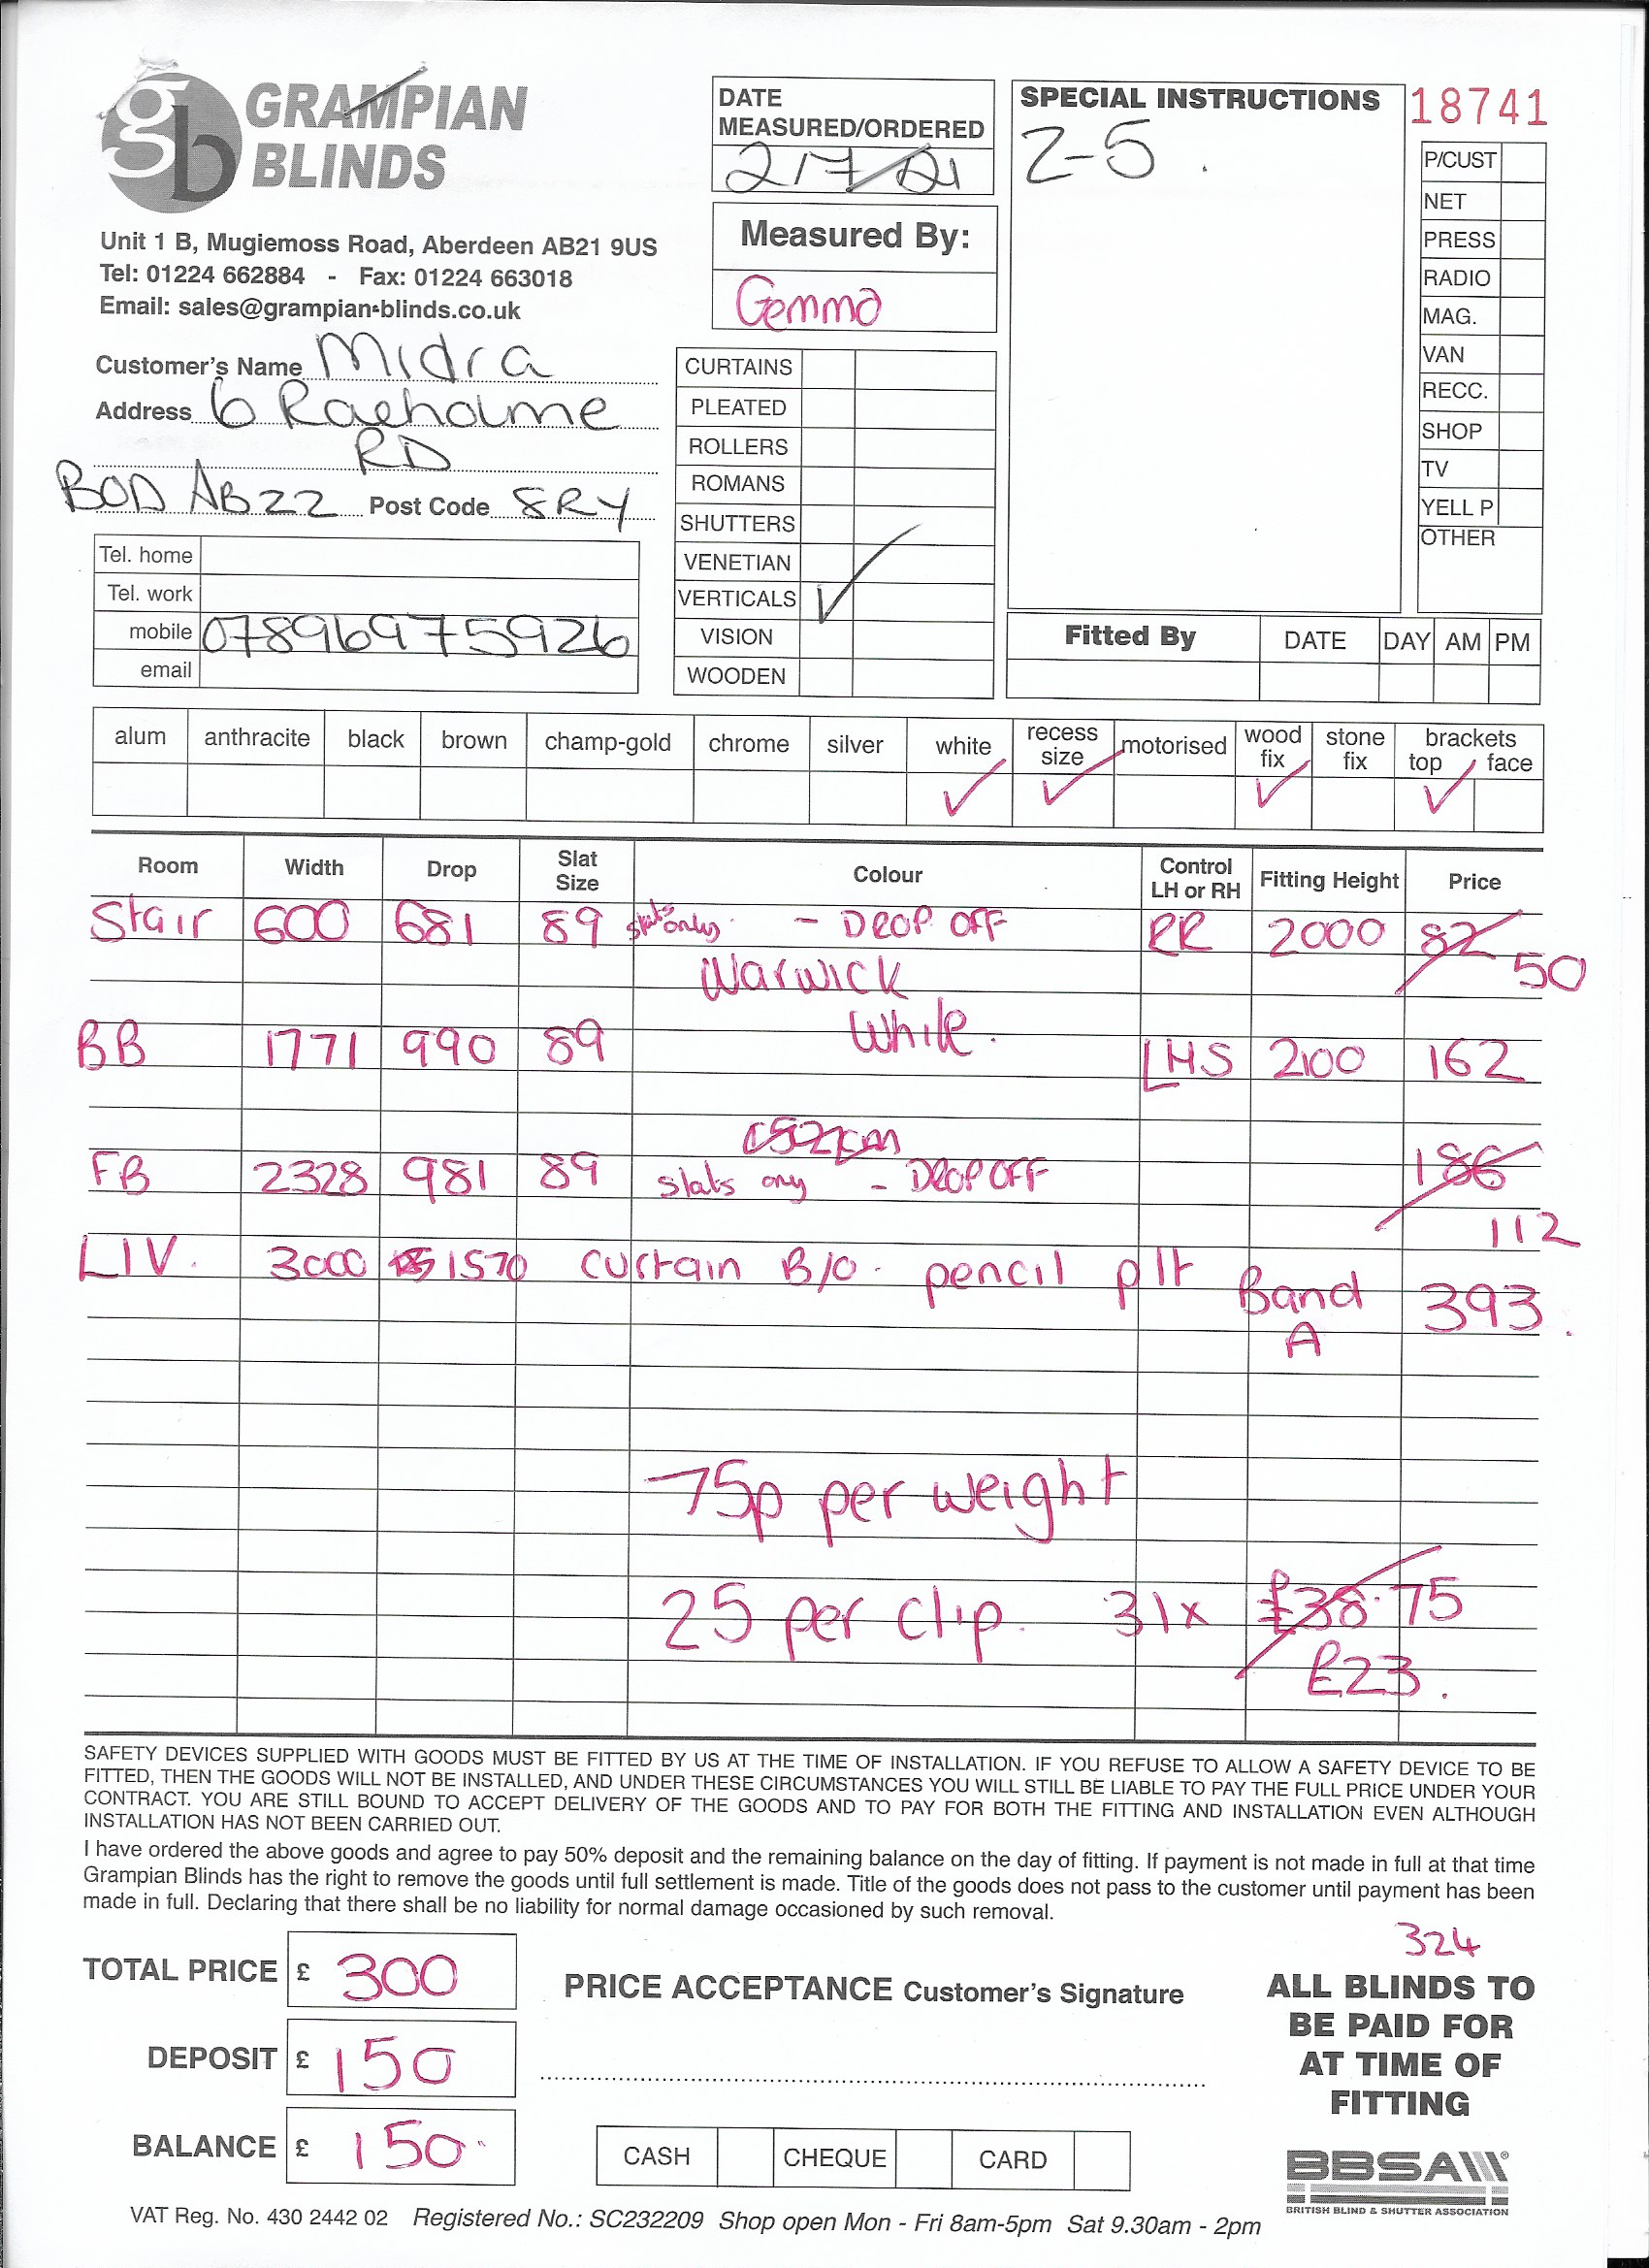 GRAMPIAN
BLINDS
gb
Unit 1 B, Mugiemoss Road, Aberdeen AB21 9US
Tel: 01224 662884 - Fax: 01224 663018
Email: sales@grampian-blinds.co.uk
Customer's Name Midra
Address 6 Raeholme
RD
BOD AB22 Post Code 8RY
Tel. home
Tel. work
mobile 07896975926
email
DATE
MEASURED/ORDERED
2/7/21
Measured By:
Gemma
CURTAINS
PLEATED
ROLLERS
ROMANS
SHUTTERS
VENETIAN
VERTICALS ✓
VISION
WOODEN
SPECIAL INSTRUCTIONS
2-5.
18741
P/CUST
NET
PRESS
RADIO
MAG.
VAN
RECC.
SHOP
TV
YELL P
OTHER
Fitted By DATE DAY AM PM
alum anthracite black brown champ-gold chrome silver white recess size motorised wood fix stone fix brackets top face
✓ ✓ ✓ ✓
Room Width Drop Slat Size Colour Control LH or RH Fitting Height Price
Stair 600 681 89 slats only - DROP OFF RR 2000 82
50
Warwick
White.
BB 1771 990 89 LHS 2100 162
FB 2328 981 89 slats ony - DROP OFF 186
112
LIV. 3000 1570 curtain B/O. pencil plt Band A 393.
75p per weight
25 per clip. 31x £38.75
£23.
SAFETY DEVICES SUPPLIED WITH GOODS MUST BE FITTED BY US AT THE TIME OF INSTALLATION. IF YOU REFUSE TO ALLOW A SAFETY DEVICE TO BE
FITTED, THEN THE GOODS WILL NOT BE INSTALLED, AND UNDER THESE CIRCUMSTANCES YOU WILL STILL BE LIABLE TO PAY THE FULL PRICE UNDER YOUR
CONTRACT. YOU ARE STILL BOUND TO ACCEPT DELIVERY OF THE GOODS AND TO PAY FOR BOTH THE FITTING AND INSTALLATION EVEN ALTHOUGH
INSTALLATION HAS NOT BEEN CARRIED OUT.
I have ordered the above goods and agree to pay 50% deposit and the remaining balance on the day of fitting. If payment is not made in full at that time
Grampian Blinds has the right to remove the goods until full settlement is made. Title of the goods does not pass to the customer until payment has been
made in full. Declaring that there shall be no liability for normal damage occasioned by such removal.
TOTAL PRICE £ 300
DEPOSIT £ 150
BALANCE £ 150
PRICE ACCEPTANCE Customer's Signature
CASH CHEQUE CARD
324
ALL BLINDS TO
BE PAID FOR
AT TIME OF
FITTING
BBSA
BRITISH BLIND & SHUTTER ASSOCIATION
VAT Reg. No. 430 2442 02 Registered No.: SC232209 Shop open Mon - Fri 8am-5pm Sat 9.30am - 2pm